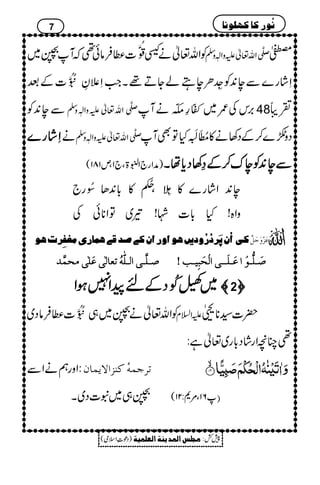 نُور کا کھلونا
7
مصطفٰی صلَّی اللہ تعالٰی علیہ واٰلہٖ وسلَّم کو اللہ تعالٰی نے کیسی قُوَّت عطا فرمائی تھی کہ آپ بچپن میں
اِشارے سے چاند کو جدھر چاہتے لے جاتے تھے۔ جب اِعلانِ نُبُوَّت کے بعد
تقریباً 48 برس کی عمر میں کفّارِ مکّہ نے آپ صلَّی اللہ تعالٰی علیہ واٰلہٖ وسلَّم سے چاند کو
دو ٹکڑے کر کے دکھانے کا مُطالَبہ کیا، تو بھی آپ صلَّی اللہ تعالٰی علیہ واٰلہٖ وسلَّم نے اِشارے
سے چاند کو چاک کر کے دِکھا دیا تھا۔ (مدارج النبوۃ، ج۱ ص۱۸۱)
چاند اشارے کا ہلا حُکم کا باندھا سُورج
واہ! کیا بات شہا! تیری توانائی کی
اللہ عَزَّوَجَلَّ کی اُن پَر دُرُودیں ہو اور ان کے صدقے ہماری مغفِرت ہو
صَلُّوا عَلَی الْحَبِیب! صلَّی اللہُ تعالٰی عَلٰی محمَّد
﴿2﴾ میں کھیل کُود کے لئے پیدا نہیں ہوا
حضرت سیدنا یحییٰ علیہ السلام کو اللہ تعالٰی نے بچپن میں ہی نبُوّت عطا فرما دی
تھی چنانچہ ارشادِ باری تعالٰی ہے:
وَاٰتَیْنٰهُ الْحُكْمَ صَبِیًّا
(پ۱۶، مریم: ۱۲)
ترجمۂ کنزالایمان: اور ہم نے اسے
بچپن میں ہی نبوت دی۔
پیش کش: مجلس المدینۃ العلمیۃ (دعوت اسلامی)